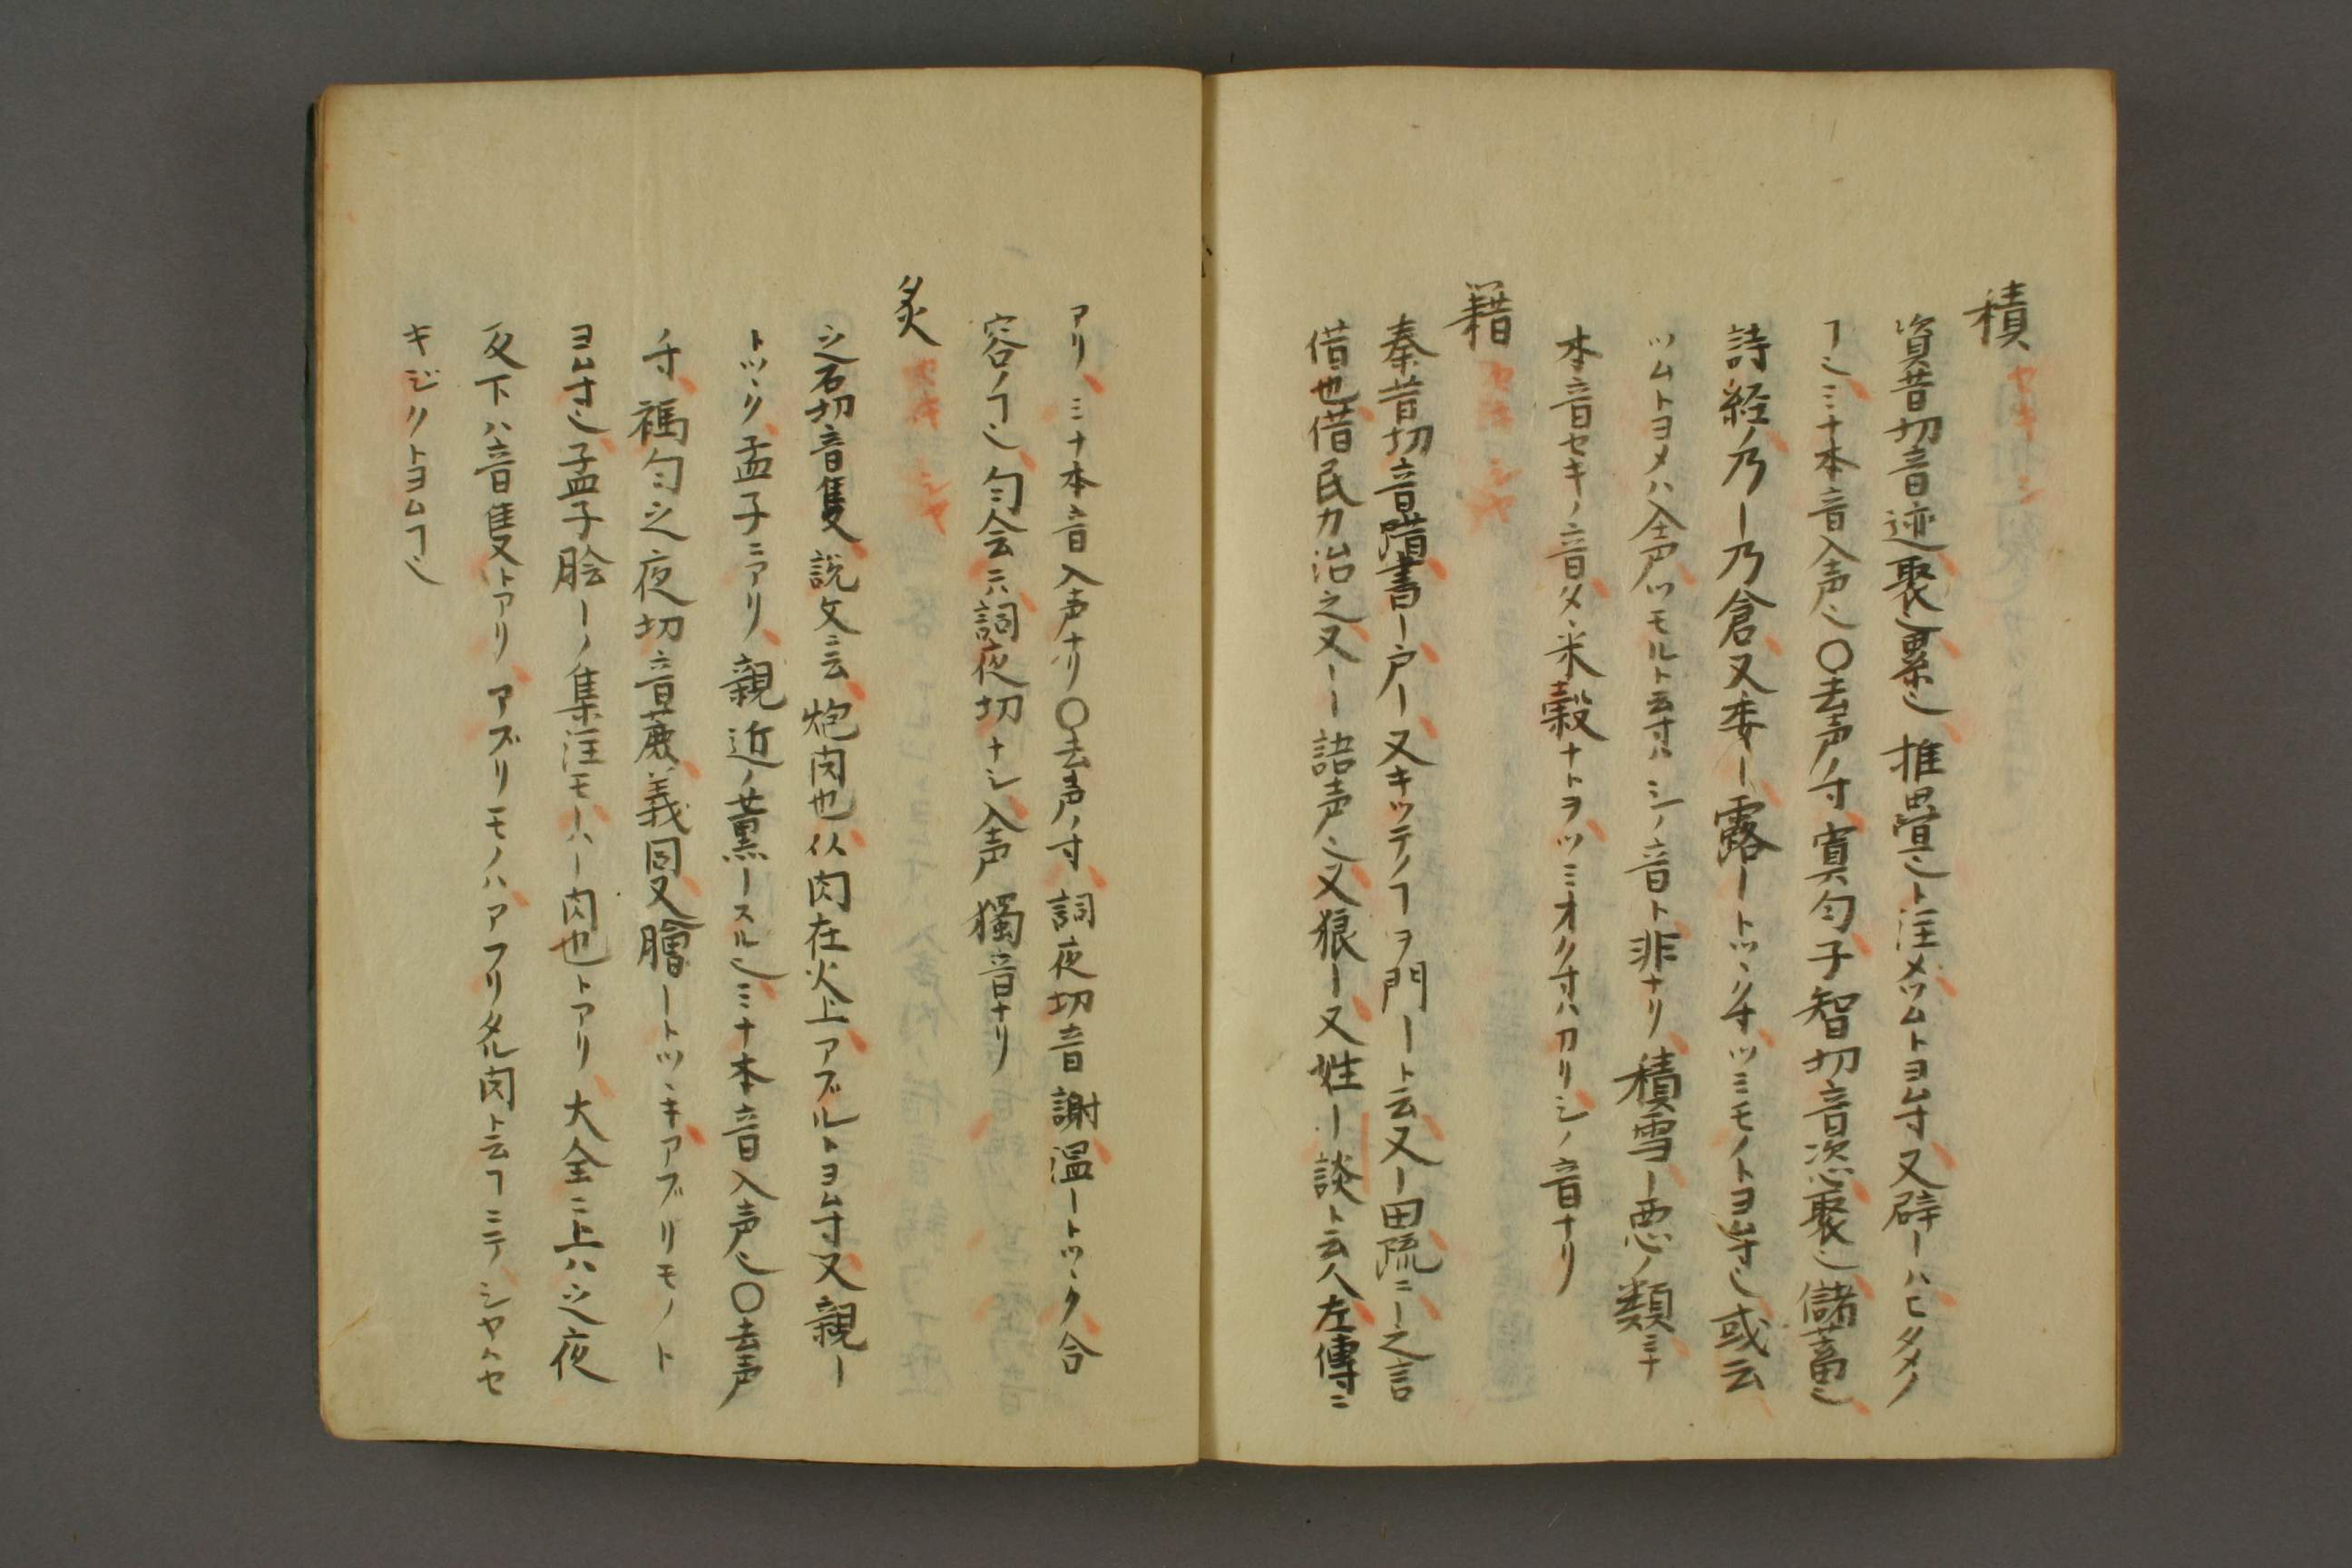 積 セキ シ
資昔切音迹聚也累也推疊也ト注メツムトヨム寸又辟ーハヒダメノ
ヿ也ミナ本音入声也〇去声ノ寸寘匀子智切音恣聚也儲蓄也
詩経ノ乃ー乃倉又委ー露ートツヽク寸ツミモノトヨム寸也或云
ツムトヨメハ入声ツモルト云寸ハシノ音ト非ナリ積雪ー悪ノ類ミナ
本音セキノ音タヽ米穀ナトヲツミオク寸ハカリシノ音ナリ
籍 セキ シヤ
秦昔切音踖書ー戸ー又キツテノヿヲ門ート云又ー田疏ニー之言
借也借民力治之又ーー語声也又狼ー又姓ー談ト云人左傳ニ
アリミナ本音入声ナリ〇去声ノ寸詞夜切音謝温ートツヽク含
容ノヿ也匀会ニハ詞夜切ナシ入声獨音ナリ
炙 セキ シヤ
之石切音隻説文ニ云炮肉也从肉在火上アブルトヨム寸又親ー
トツヽク孟子ニアリ親近ノ薫ースル也ミナ本音入声也〇去声
ノ寸禡匀之夜切音蔗義同又膾ートツヽキアブリモノト
ヨム寸也孟子膾ーノ集注モーハー肉也トアリ大全ニ上ハ之夜
反下ハ音隻トアリアズリモノハアフリタル肉ト云ヿニテシヤヘセ
キジクトヨムヿ也